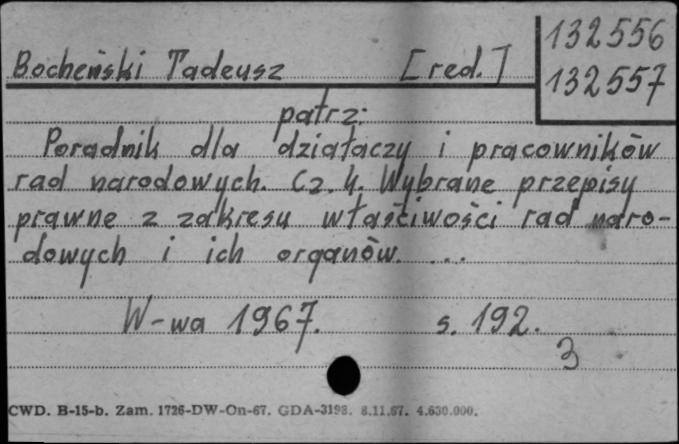 132556
Bocheński Tadeusz [red.]
132557
patrz:
Poradnik dla działaczy i pracowników
rad narodowych. Cz. 4. Wybrane przepisy
prawne z zakresu właściwości rad naro-
dowych i ich organów. ...
W-wa 1967. s. 192.
3
CWD. B-15-b. Zam. 1726-DW-On-67. GDA-3198. 8.11.67. 4.630.000.